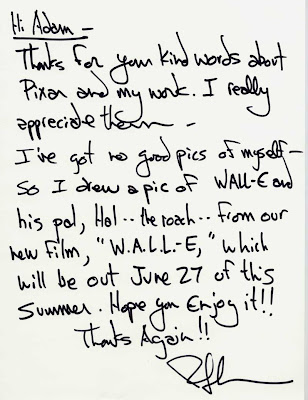 Hi Adam —
Thanks for your kind words about
Pixar and my work. I really
appreciate them —
I've got no good pics of myself —
So I drew a pic of WALL-E and
his pal, Hal -- the roach -- from our
new film, "W.A.L.L.-E," which
will be out June 27 of this
Summer. Hope you Enjoy it!!
Thanks Again!!